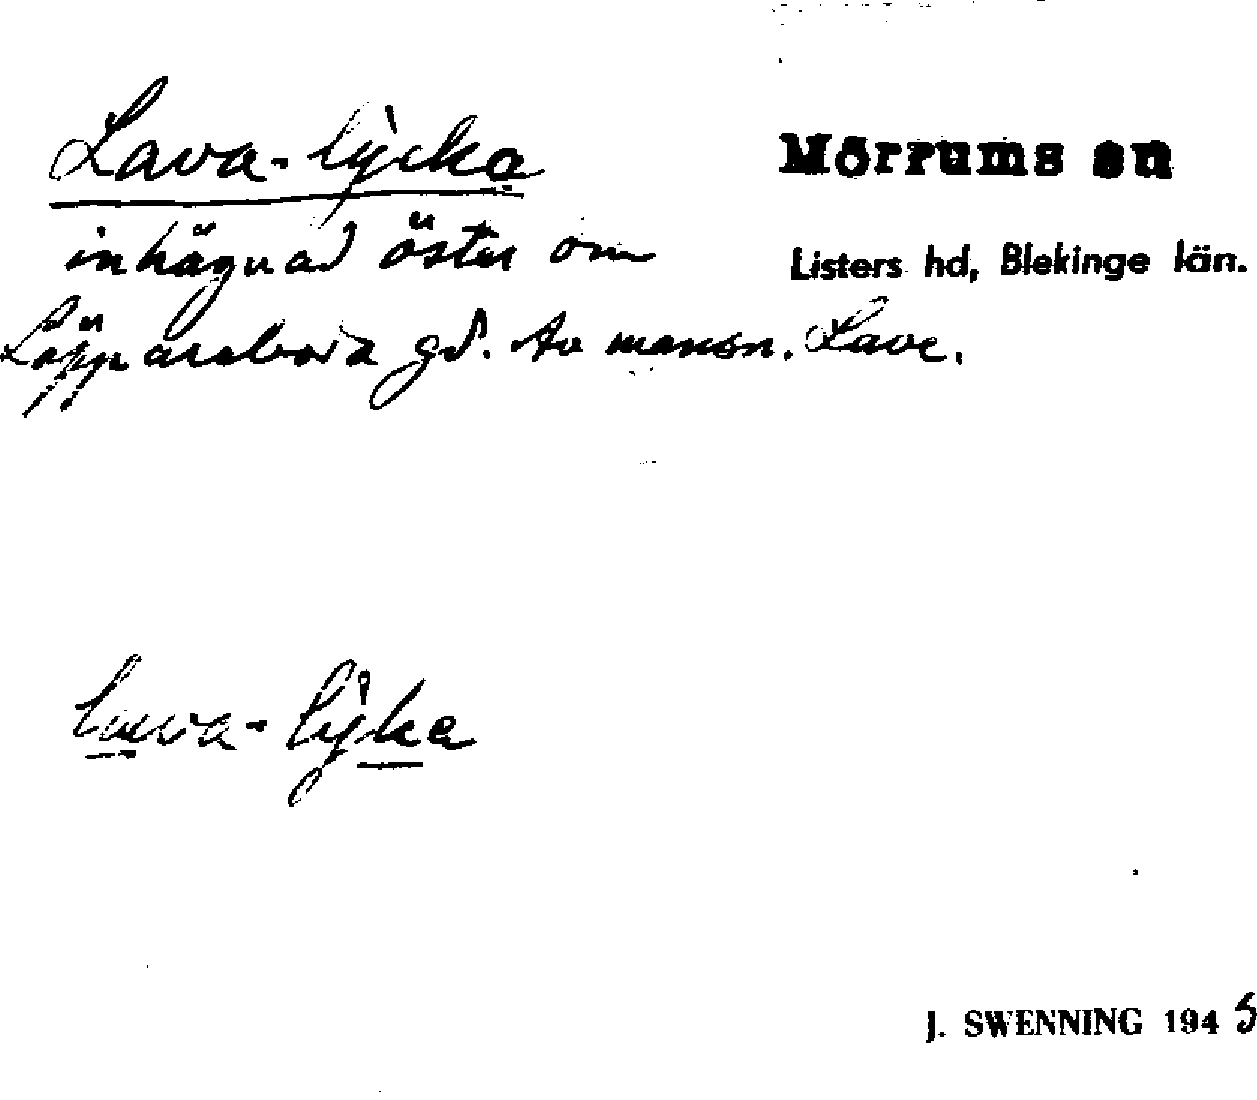 Lava-lycka
Mörrums sn
inhägnad öster om
Listers hd, Blekinge län.
gd. Av mansn. Lave.
Lava-lyka
J. SWENNING 1945